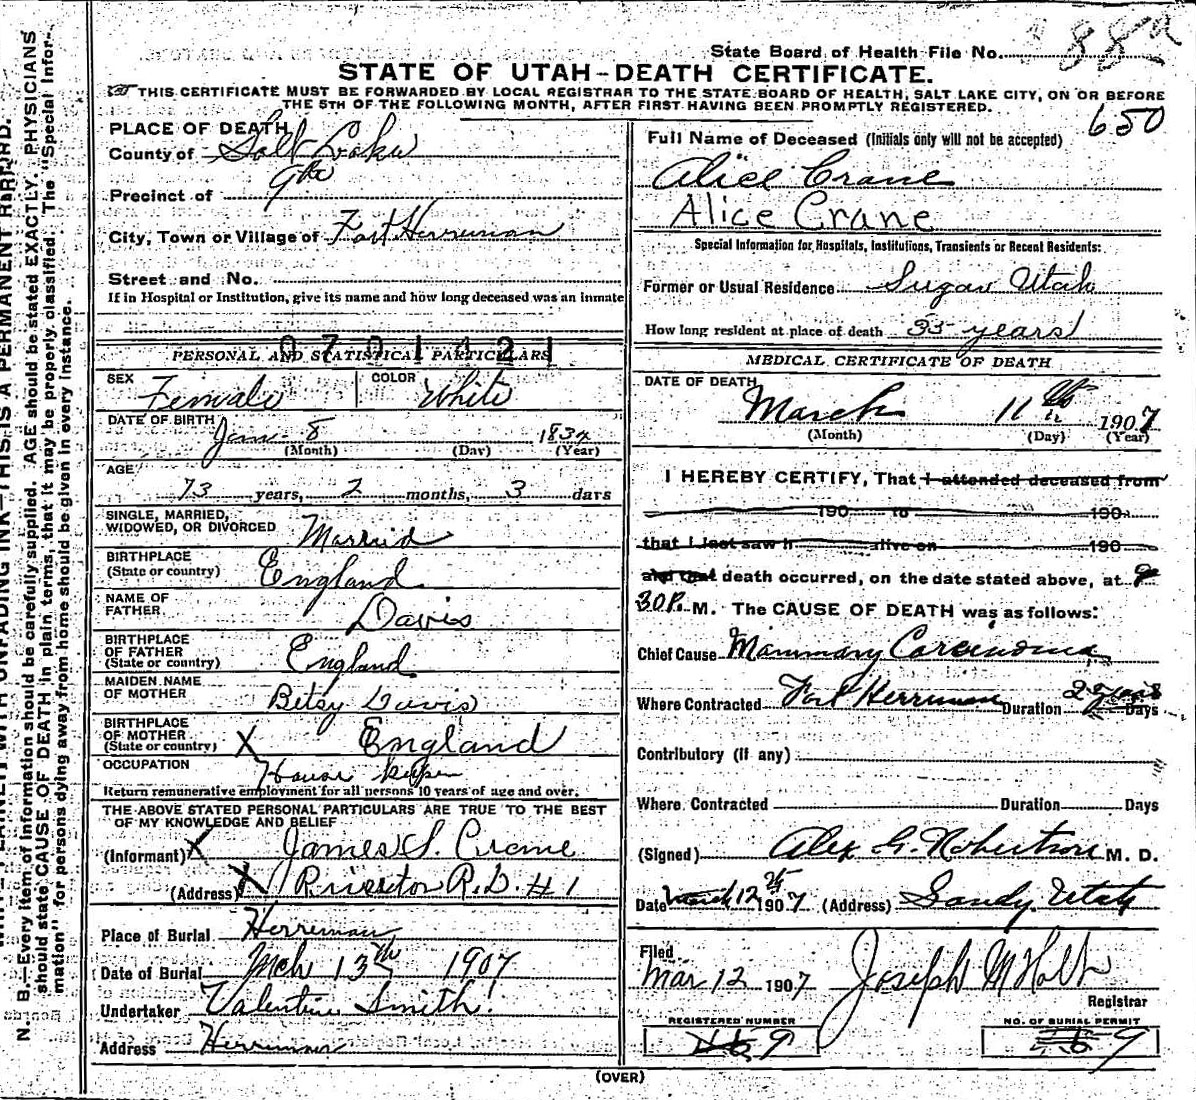 State Board of Health File No. 88a
STATE OF UTAH-DEATH CERTIFICATE.
THIS CERTIFICATE MUST BE FORWARDED BY LOCAL REGISTRAR TO THE STATE BOARD OF HEALTH, SALT LAKE CITY, ON OR BEFORE
THE 5TH OF THE FOLLOWING MONTH, AFTER FIRST HAVING BEEN PROMPTLY REGISTERED.
650
PLACE OF DEATH
County of Salt Lake
Precinct of 9th
City, Town or Village of Fort Herriman
Street and No.
If in Hospital or Institution, give its name and how long deceased was an inmate
0701421
PERSONAL AND STATISTICAL PARTICULARS
SEX Female COLOR White
DATE OF BIRTH Jan- 8 1834
(Month) (Day) (Year)
AGE
73 years, 2 months, 3 days
SINGLE, MARRIED,
WIDOWED, OR DIVORCED Married
BIRTHPLACE
(State or country) England
NAME OF
FATHER. Davis
BIRTHPLACE
OF FATHER
(State or country) England
MAIDEN NAME
OF MOTHER Betsy Davis
BIRTHPLACE
OF MOTHER
(State or country) X England
OCCUPATION House keeper
Return remunerative employment for all persons 10 years of age and over.
THE ABOVE STATED PERSONAL PARTICULARS ARE TRUE TO THE BEST
OF MY KNOWLEDGE AND BELIEF
(Informant) X James S. Crane
(Address) X Riverton R.D. #1
Place of Burial Herriman
Date of Burial Mch 13th 1907
Undertaker Valentine Smith
Address Herriman
Full Name of Deceased (Initials only will not be accepted)
Alice Crane
Alice Crane
Special Information for Hospitals, Institutions, Transients or Recent Residents:
Former or Usual Residence Sugar Utah
How long resident at place of death 33 years
MEDICAL CERTIFICATE OF DEATH
DATE OF DEATH
March 11th 1907
(Month) (Day) (Year)
I HEREBY CERTIFY, That I attended deceased from
190 to 190
that I last saw h alive on 190
and that death occurred, on the date stated above, at 9
30 P. M. The CAUSE OF DEATH was as follows:
Chief Cause Mammary Carcinoma
Where Contracted Fort Herriman Duration 2 years Days
Contributory (if any)
Where Contracted Duration Days
(Signed) Alex G. Robertson M. D.
Date March 12th 1907 (Address) Sandy Utah
Filed
Mar 12 1907 Joseph M Holt
Registrar
REGISTERED NUMBER NO. OF BURIAL PERMIT
9 9
(OVER)
N. B.—Every item of information should be carefully supplied. AGE should be stated EXACTLY. PHYSICIANS
should state CAUSE OF DEATH in plain terms, that it may be properly classified. The "Special Infor-
mation" for persons dying away from home should be given in every instance.
WITH UNFADING INK—THIS IS A PERMANENT RECORD.